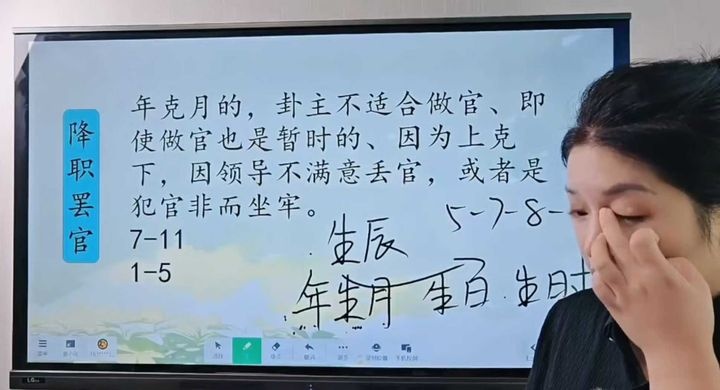 降职罢官
年克月的，卦主不适合做官、即
使做官也是暂时的、因为上克
下，因领导不满意丢官，或者是
犯官非而坐牢。
7-11
1-5
5-7-8-
生辰
年生月 生日 生时